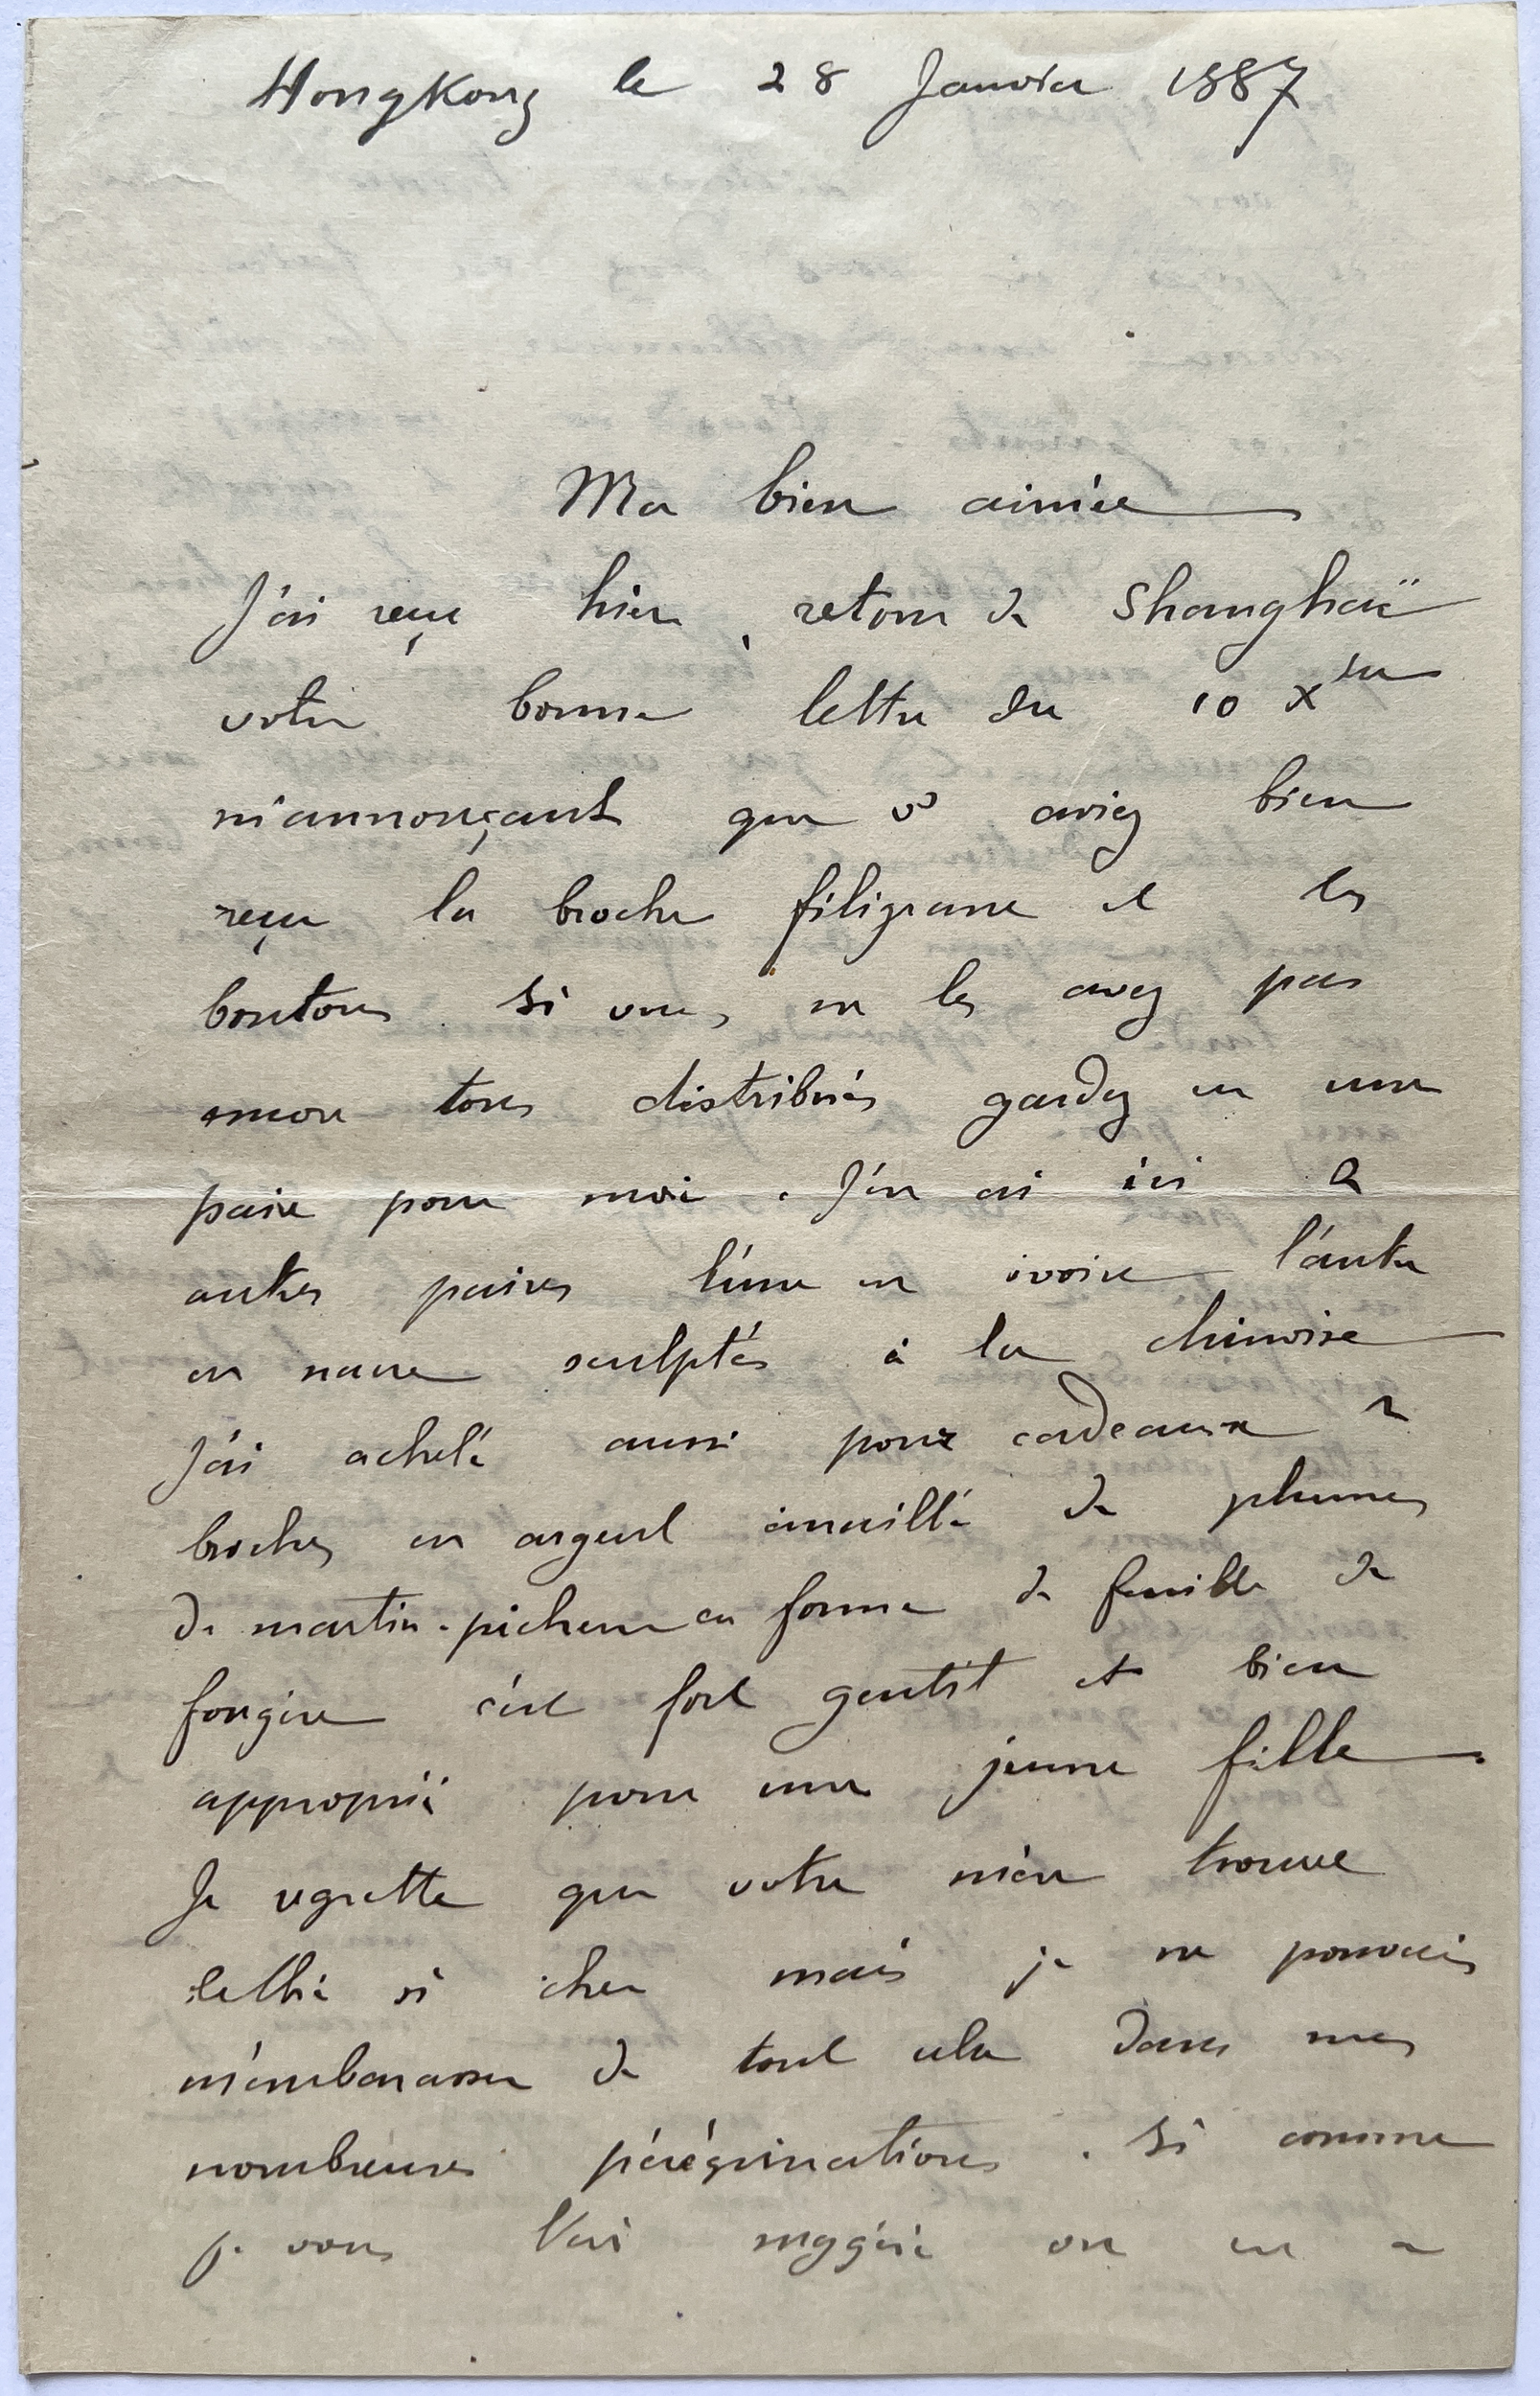 HongKong le 28 Janvier 1887
Ma bien aimée
J'ai reçu hier, retour de Shanghaï
votre bonne lettre du 10 Xbre
m'annonçant que vs aviez bien
reçu la broche filigrane et les
boutons. Si vous ne les avez pas
encore tous distribués gardez en une
paire pour moi. J'en ai ici 2
autres paires l'une en ivoire l'autre
en nacre sculptés à la chinoise
J'ai acheté aussi pour cadeaux 2
broches en argent émaillé de plumes
de martin-pêcheur en forme de feuille de
fougère c'est fort gentil et bien
approprié pour une jeune fille.
Je regrette que votre mère trouve
si cher mais je ne pouvais
m'embarasser de tout cela dans mes
nombreuses pérégrinations. Si comme
je vous l'ai suggéré on en a